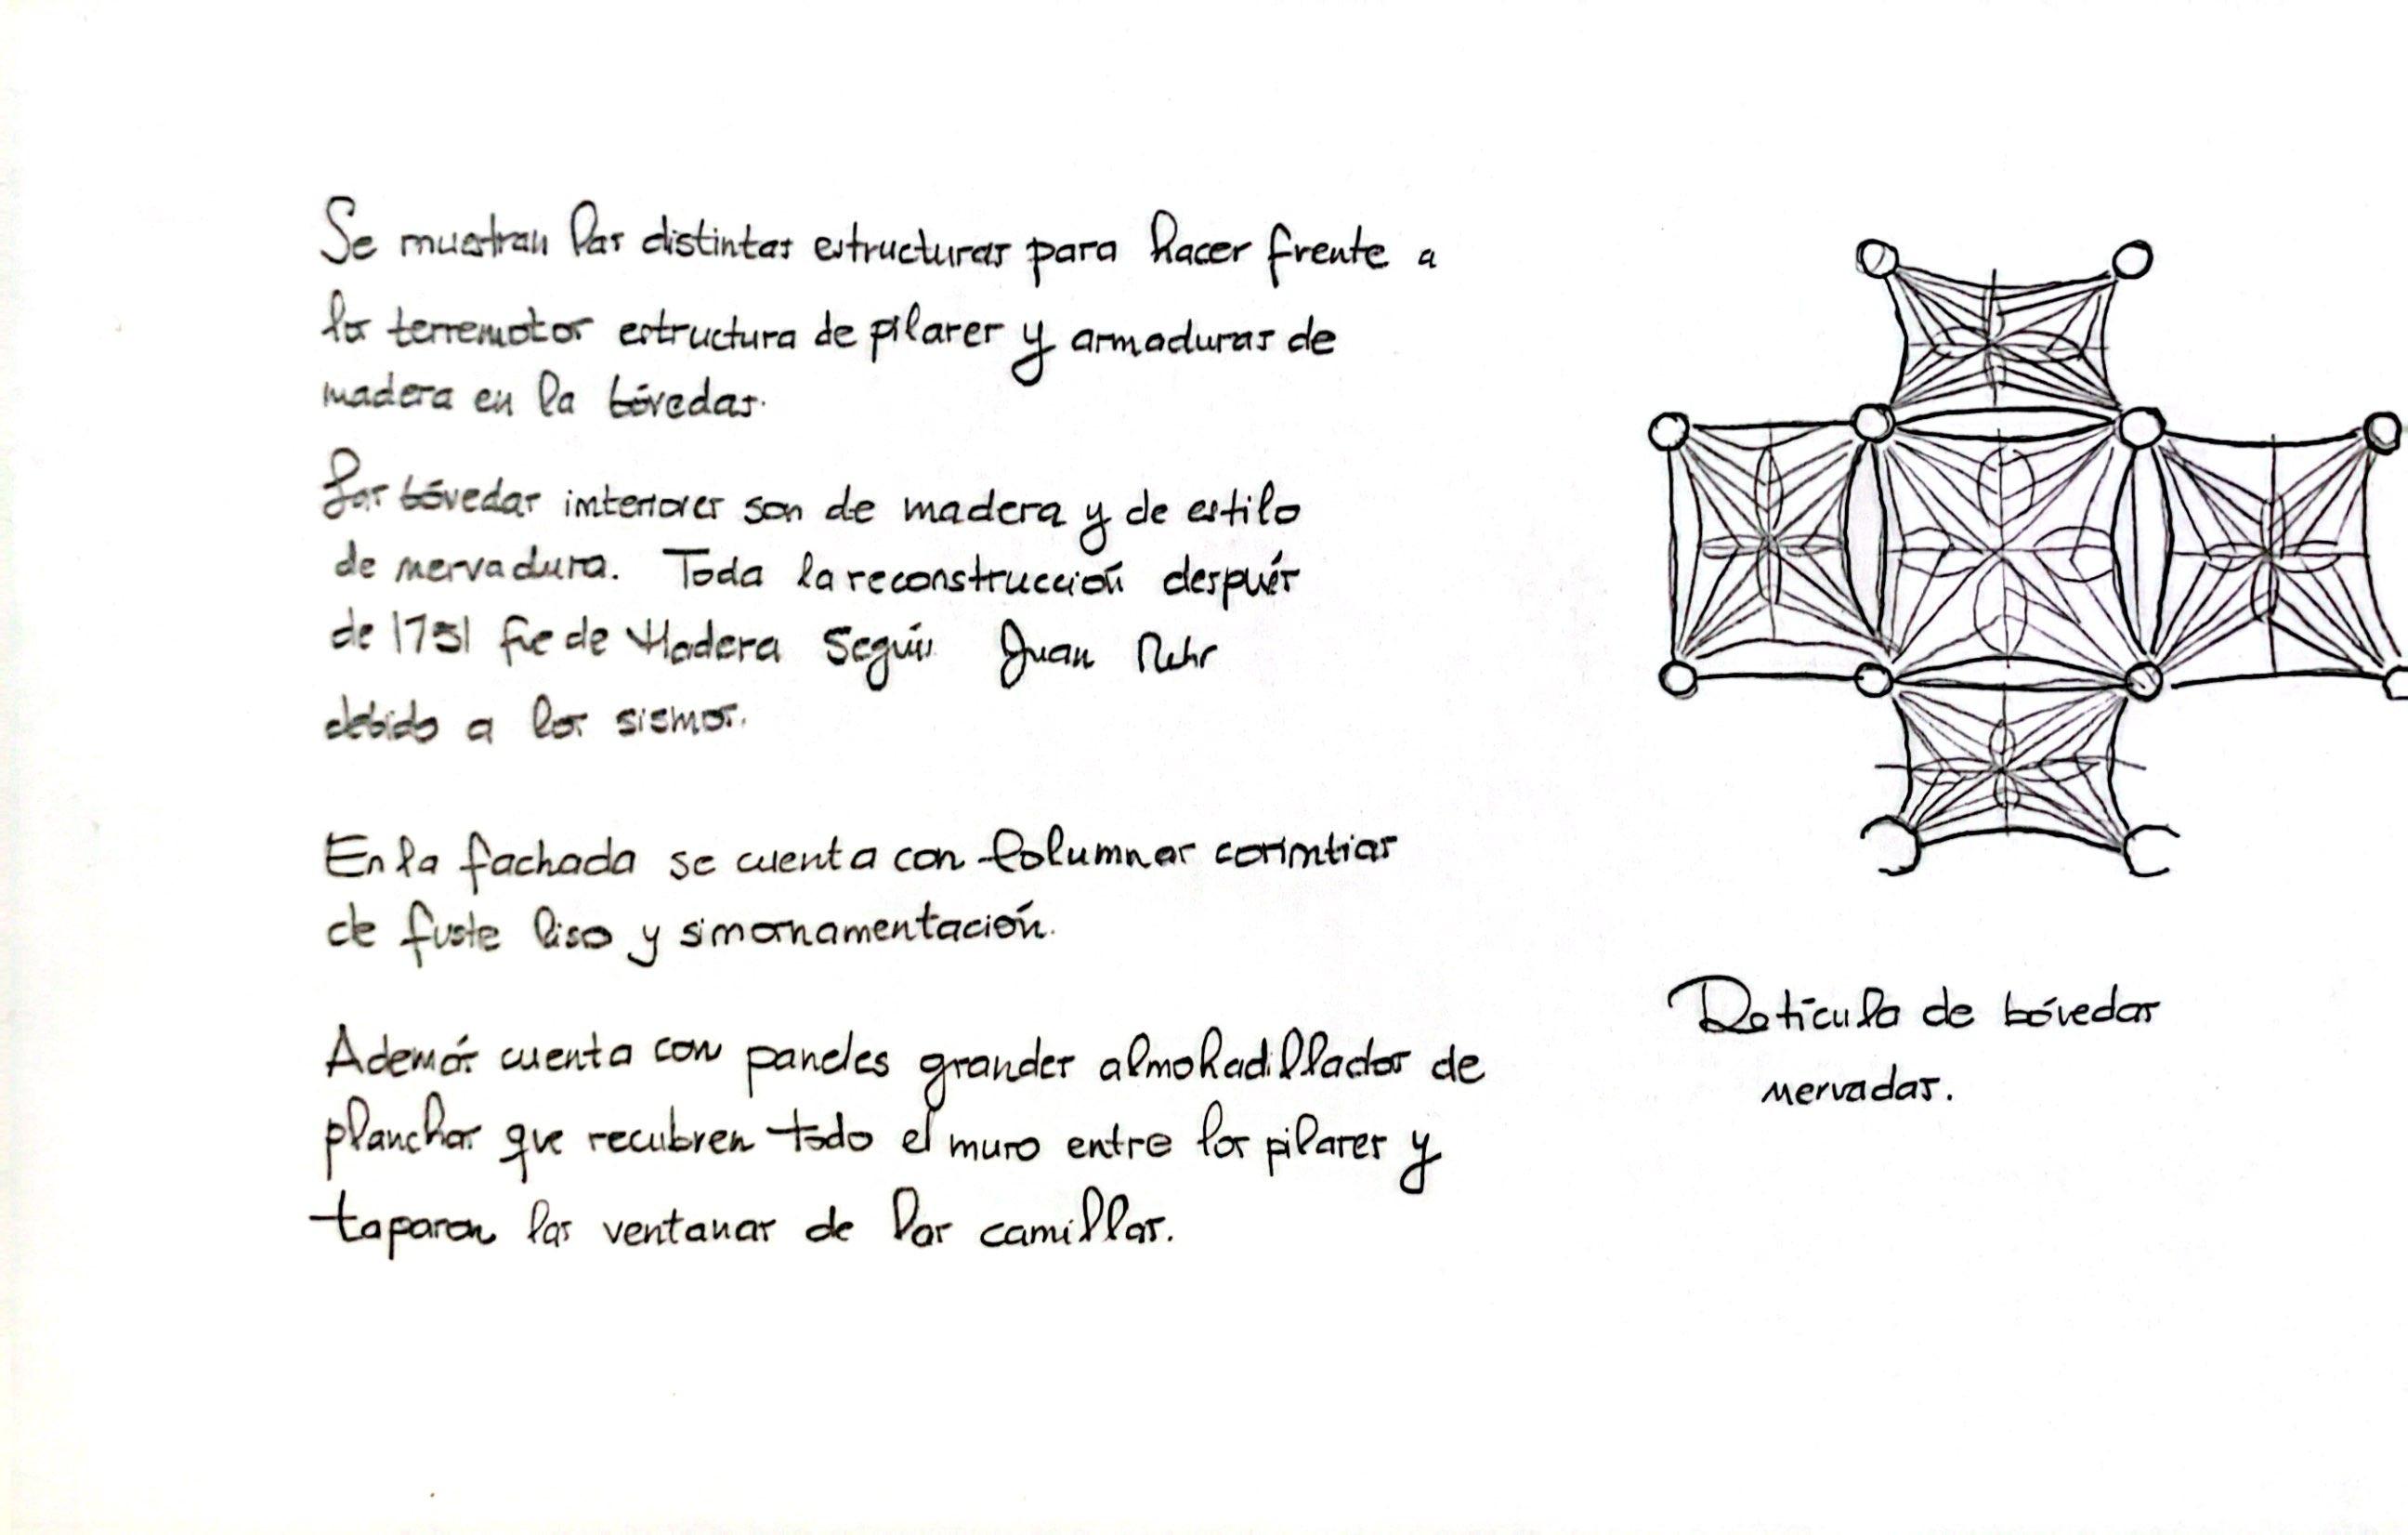 Se muestran las distintas estructuras para hacer frente a
los terremotos estructura de pilares y armaduras de
madera en la bóvedas.
Las bóvedas interiores son de madera y de estilo
de nervadura. Toda la reconstrucción después
de 1751 fue de Madera Según Juan Rehr
debido a los sismos.
En la fachada se cuenta con Columnas corintias
de fuste liso y sin ornamentación.
Además cuenta con paneles grandes almohadillados de
planchas que recubren todo el muro entre los pilares y
taparon las ventanas de las camillas.
Retícula de bóvedas
nervadas.